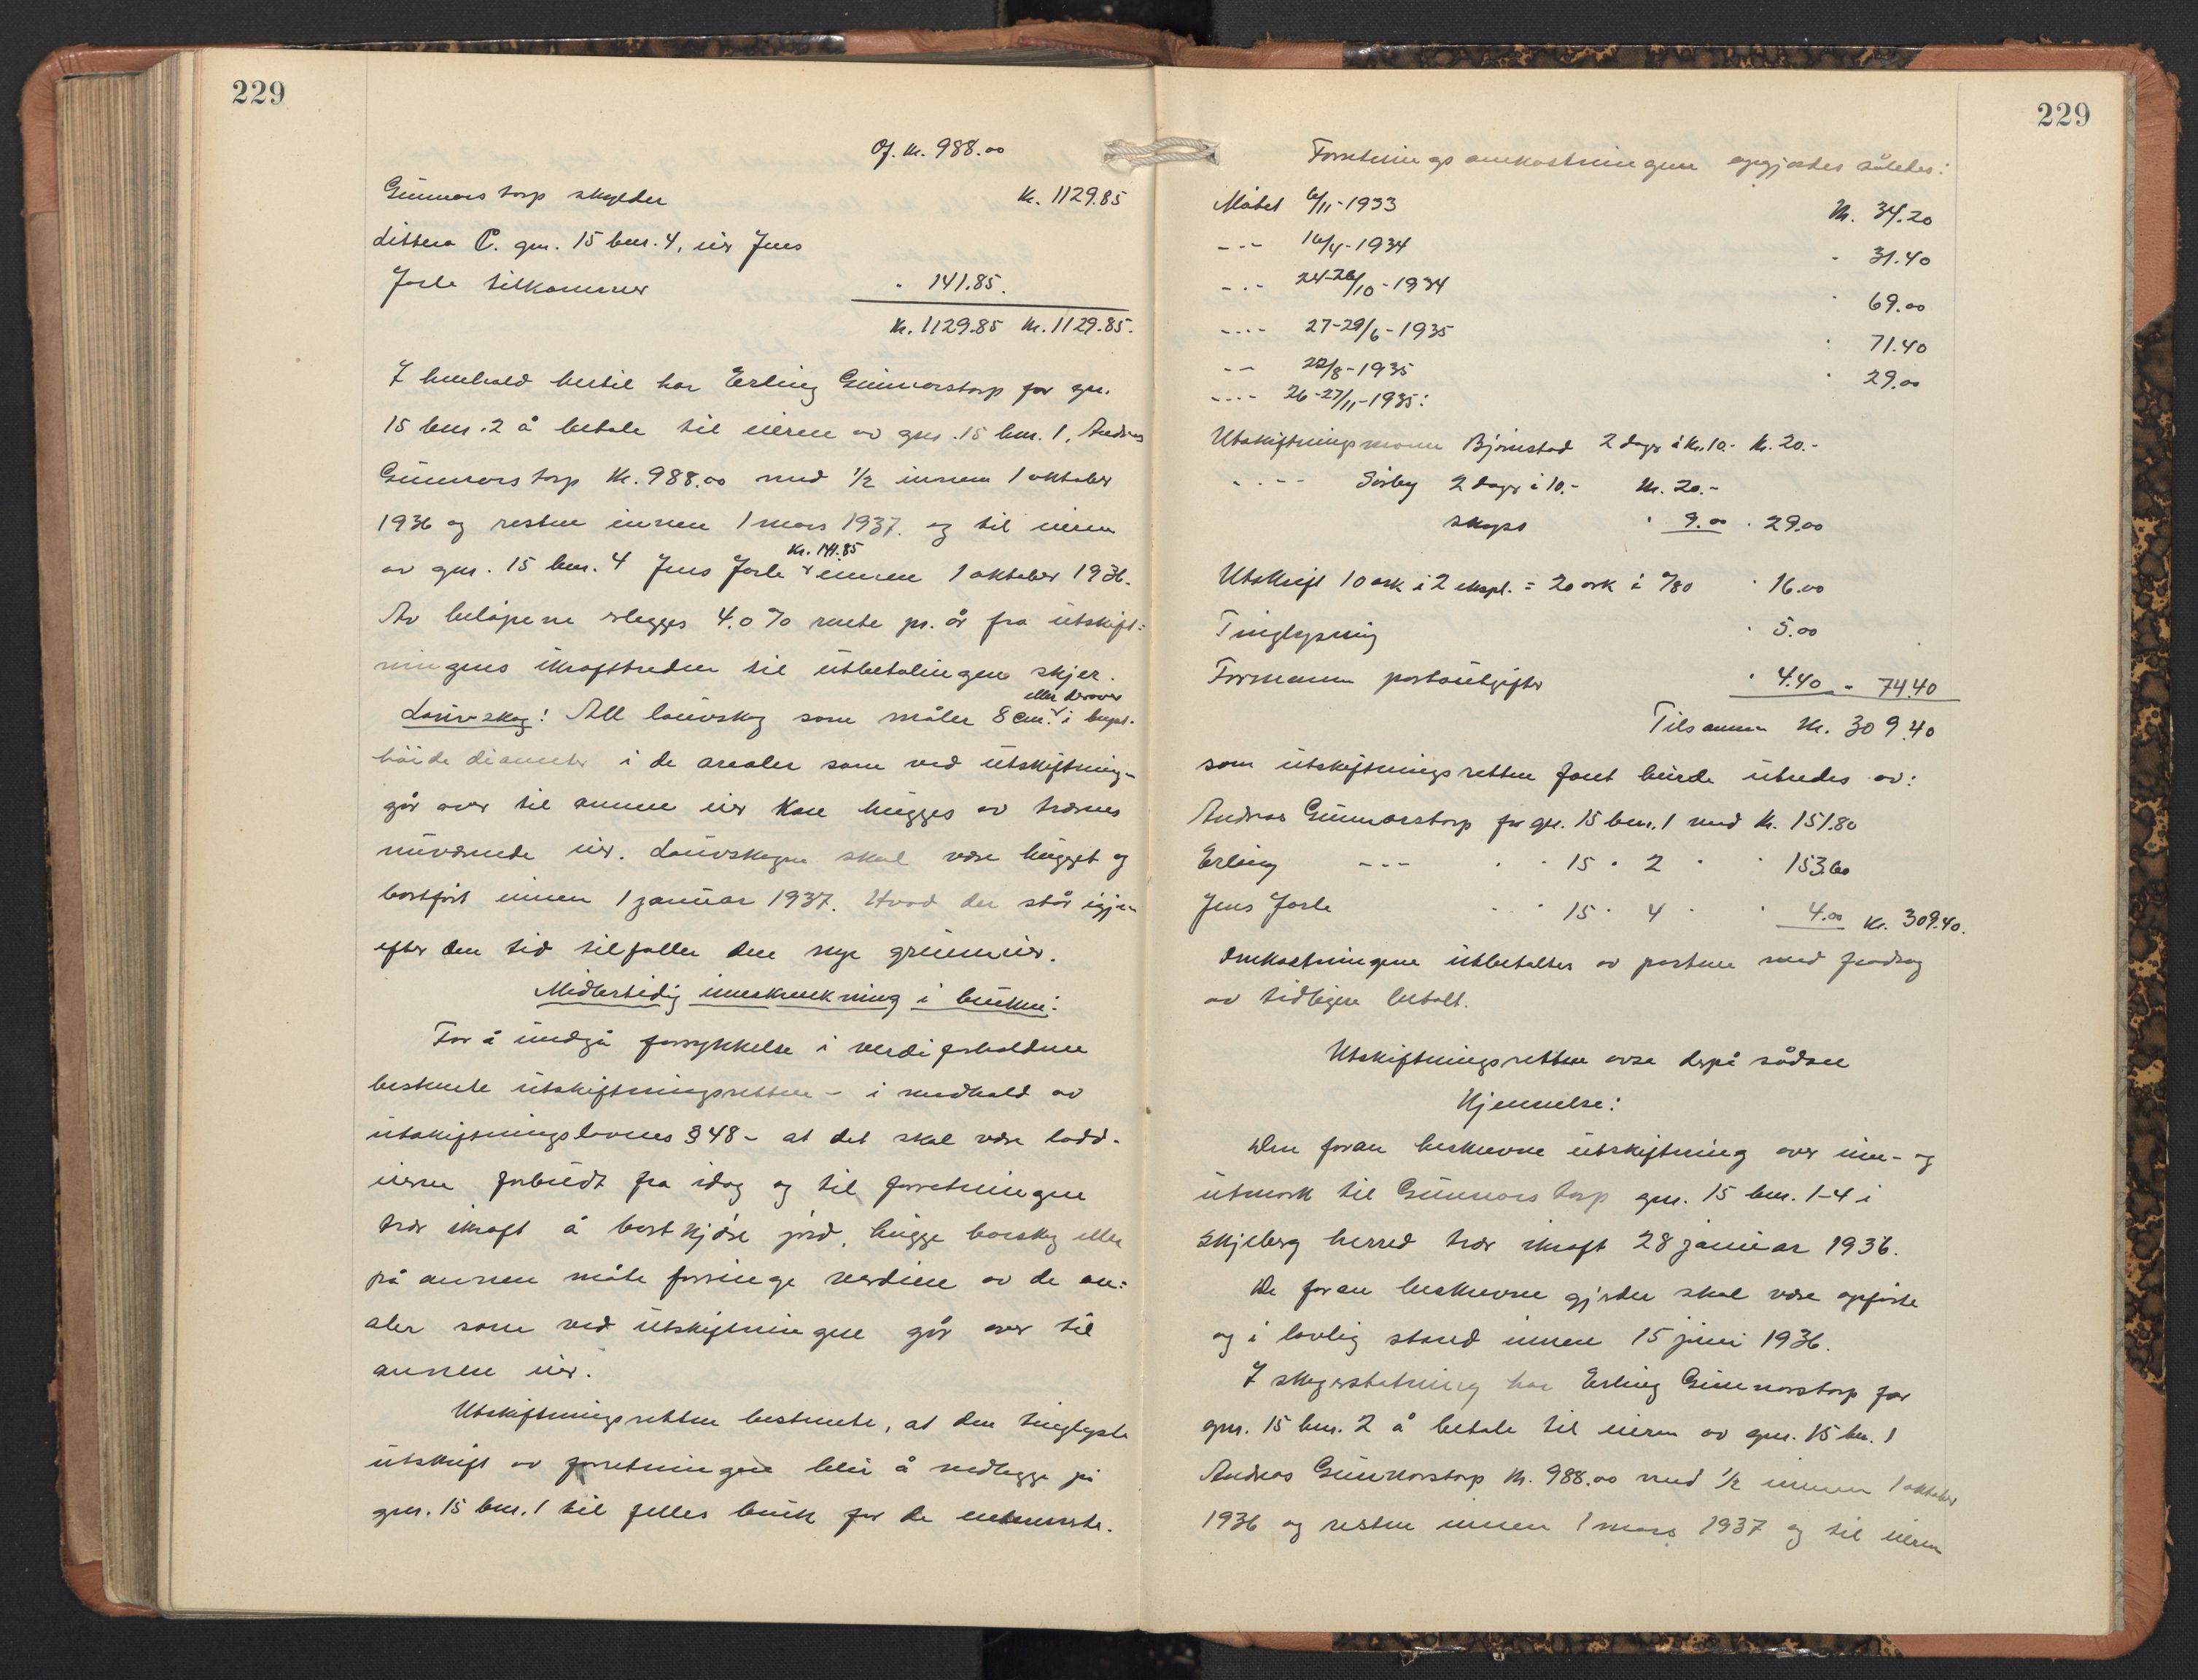 229
Of. kr. 988.00
Gunnarstorp skylder kr. 1129.85
Littera C. gnr. 15 bnr. 4, eier Jens
Jorle tilkommer " 141.85.
kr. 1129.85 kr. 1129.85.
I henhold hertil har Erling Gunnarstorp for gnr.
15 bnr. 2 å betale til eieren av gnr. 15 bnr. 1, Andreas
Gunnarstorp kr. 988.00 med 1/2 innen 1 oktober
1936 og resten innen 1 mars 1937. og til eieren
av gnr. 15 bnr. 4 Jens Jorle kr. 141.85 innen 1 oktober 1936.
Av beløpene erlegges 4.0 % rente pr. år fra utskift=
ningens ikrafttreden til utbetalingene skjer.
Lauvskog! All lauvskog som måler 8 cm. eller derover i bryst-
høide diameter i de arealer som ved utskiftning-
går over til annen eier kan hugges av trærnes
nuværende eier. Lauvskogen skal være hugget og
bortført innen 1 januar 1937. Hvad der står igjen
efter den tid tilfaller den nye grunneier.
Midlertidig innskrenkning i bruken:
For å undgå forrykkelse i verdiforholdene
bestemte utskiftningsretten - i medhold av
utskiftningslovens § 48 - at det skal være lodd-
eierne forbudt fra idag og til forretningen
trær ikraft å bortkjøre jord, hugge barskog eller
på annen måte forringe verdien av de are=
aler som ved utskiftningen går over til
annen eier.
Utskiftningsretten bestemte, at den tinglyste
utskrift av forretningen blir å nedlegge på
gnr. 15 bnr. 1 til felles bruk for de interesserte.
229
Forretningsomkostningene opgjordes således:
Møtet 6/11-1933 kr. 34.20
--- 16/4-1934 " 31.40
--- 24-26/10-1934 " 69.00
---- 27-29/6-1935 " 71.40
-- 22/8-1935 " 29.00
---- 26-27/11-1935:
Utskiftningsmann Bjørnstad 2 dager à kr. 10.- kr. 20.-
---- Sørby 2 dager à 10.- kr. 20.-
skyss " 9.00 " 29.00
Utskrift 10 ark i 2 ekspl. = 20 ark à 0/80 " 16.00
Tinglysning " 5.00
Formannens portoutgifter " 4.40 " 74.40
Tilsammen kr. 309.40
som utskiftningsretten fant burde utredes av:
Andreas Gunnarstorp for gnr. 15 bnr. 1 med kr. 151.80
Erling --- " " 15 " 2 " " 153.60
Jens Jorle " " 15 " 4 " " 4.00 kr. 309.40.
Omkostningene utbetaltes av partene med fradrag
av tidligere betalt.
Utskiftningsretten avsa derpå sådan
Kjennelse:
Den foran beskrevne utskiftning over inn- og
utmark til Gunnarstorp gnr. 15 bnr. 1-4 i
Skjeberg herred trær ikraft 28 januar 1936.
De foran beskrevne gjerder skal være opførte
og i lovlig stand innen 15 juni 1936.
I skogerstatning har Erling Gunnarstorp for
gnr. 15 bnr. 2 å betale til eieren av gnr. 15 bnr. 1
Andreas Gunnarstorp kr. 988.00 med 1/2 innen 1 oktober
1936 og resten innen 1 mars 1937 og til eieren